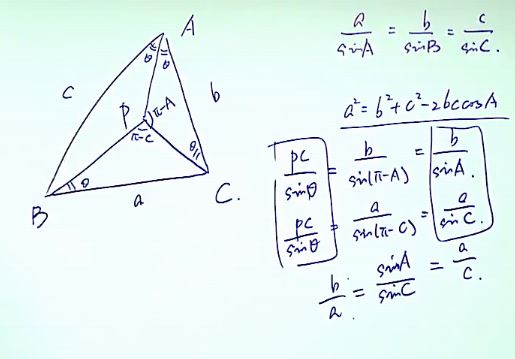 A
θ
θ
c
b
P
π-A
π-C
θ
θ
B
a
C.
a/sinA = b/sinB = c/sinC.
a²=b²+c²-2bccosA
PC/sinθ = b/sin(π-A) = b/sinA.
PC/sinθ = a/sin(π-C) = a/sinC.
b/a = sinA/sinC = a/c.